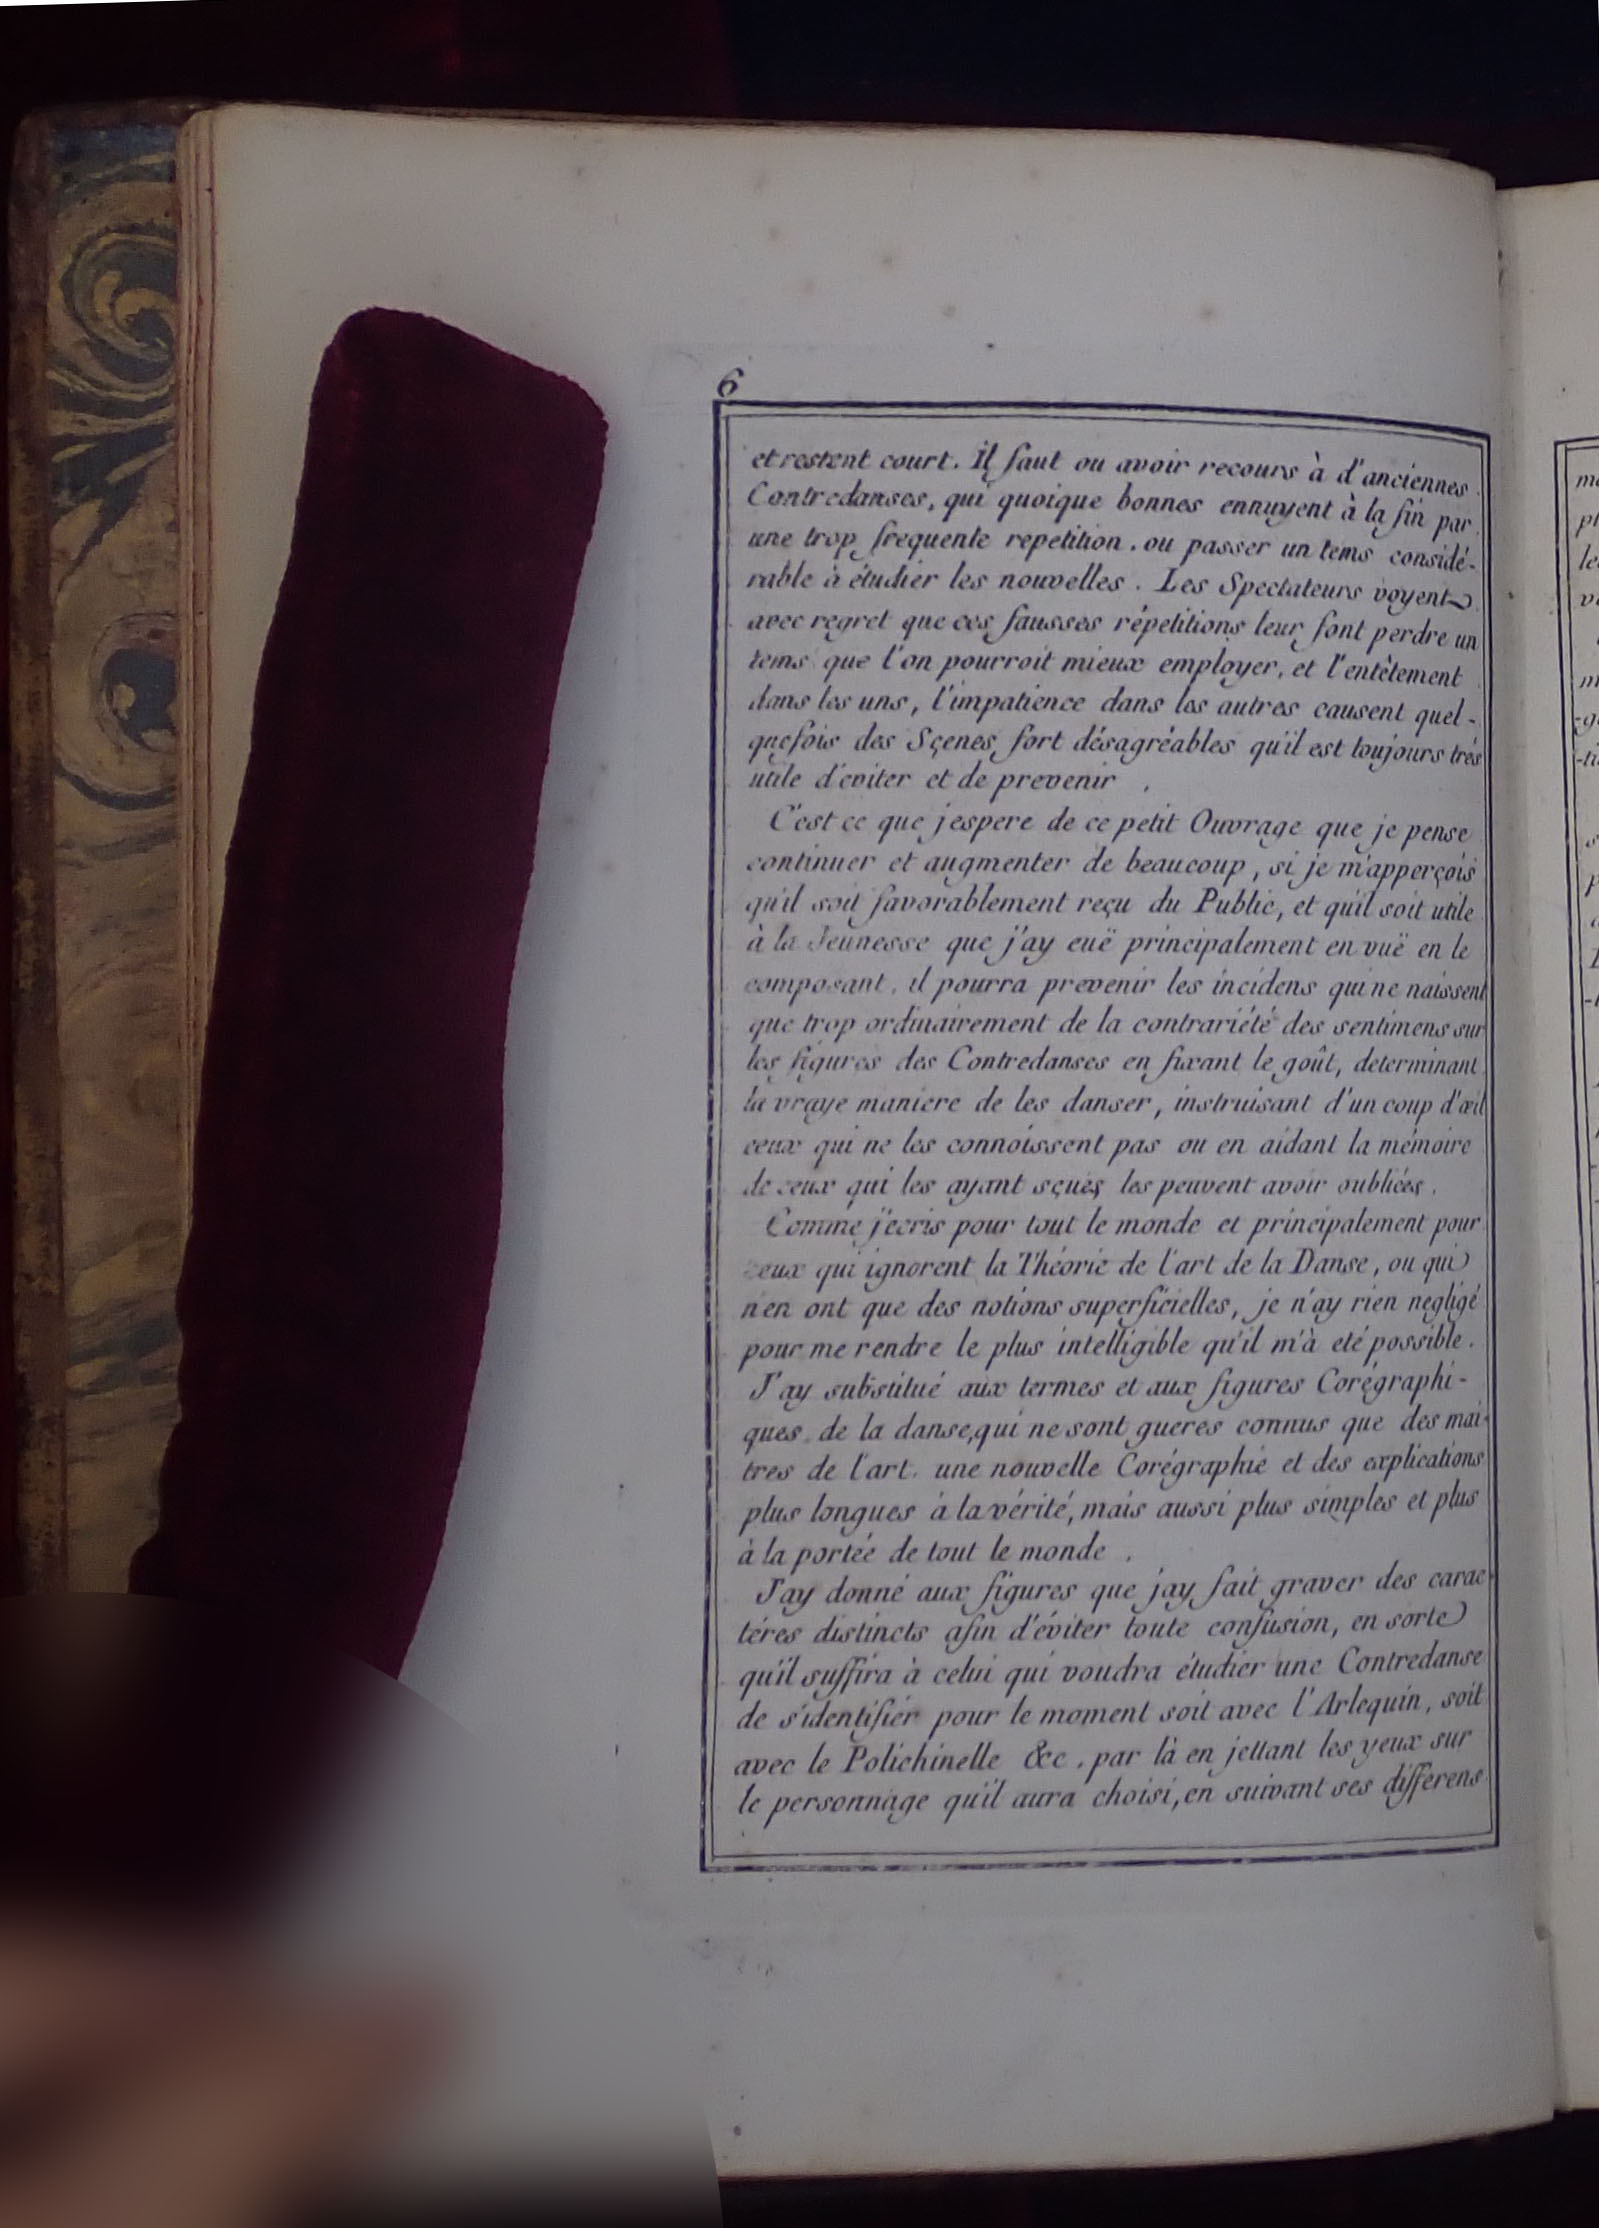 6
et restent court. Il faut ou avoir recours à d'anciennes
Contredanses, qui quoique bonnes ennuyent à la fin par
une trop frequente repetition. ou passer un tems considé-
rable à étudier les nouvelles. Les Spectateurs voyent
avec regret que ces fausses répetitions leur font perdre un
tems que l'on pourroit mieux employer, et l'entêtement
dans les uns, l'impatience dans les autres causent quel-
quefois des Sçenes fort désagréables qu'il est toujours très
utile d'eviter et de prevenir.
C'est ce que j'espere de ce petit Ouvrage que je pense
continuer et augmenter de beaucoup, si je m'apperçois
qu'il soit favorablement reçu du Public, et qu'il soit utile
à la Jeunesse que j'ay euë principalement en vuë en le
composant. il pourra prevenir les incidens qui ne naissent
que trop ordinairement de la contrariété des sentimens sur
les figures des Contredanses en fixant le goût, determinant
la vraye maniere de les danser, instruisant d'un coup d'œil
ceux qui ne les connoissent pas ou en aidant la mémoire
de ceux qui les ayant sçues, les peuvent avoir oubliées.
Comme j'ecris pour tout le monde et principalement pour
ceux qui ignorent la Théorie de l'art de la Danse, ou qui
n'en ont que des notions superficielles, je n'ay rien negligé
pour me rendre le plus intelligible qu'il m'à eté possible.
J'ay substitué aux termes et aux figures Corégraphi-
ques de la danse, qui ne sont gueres connus que des mai-
tres de l'art. une nouvelle Corégraphie et des explications
plus longues à la vérité, mais aussi plus simples et plus
à la portée de tout le monde.
J'ay donné aux figures que j'ay fait graver des carac-
téres distincts afin d'éviter toute confusion, en sorte
qu'il suffira à celui qui voudra étudier une Contredanse
de s'identifier pour le moment soit avec l'Arlequin, soit
avec le Polichinelle &c. par là en jettant les yeux sur
le personnage qu'il aura choisi, en suivant ses differens